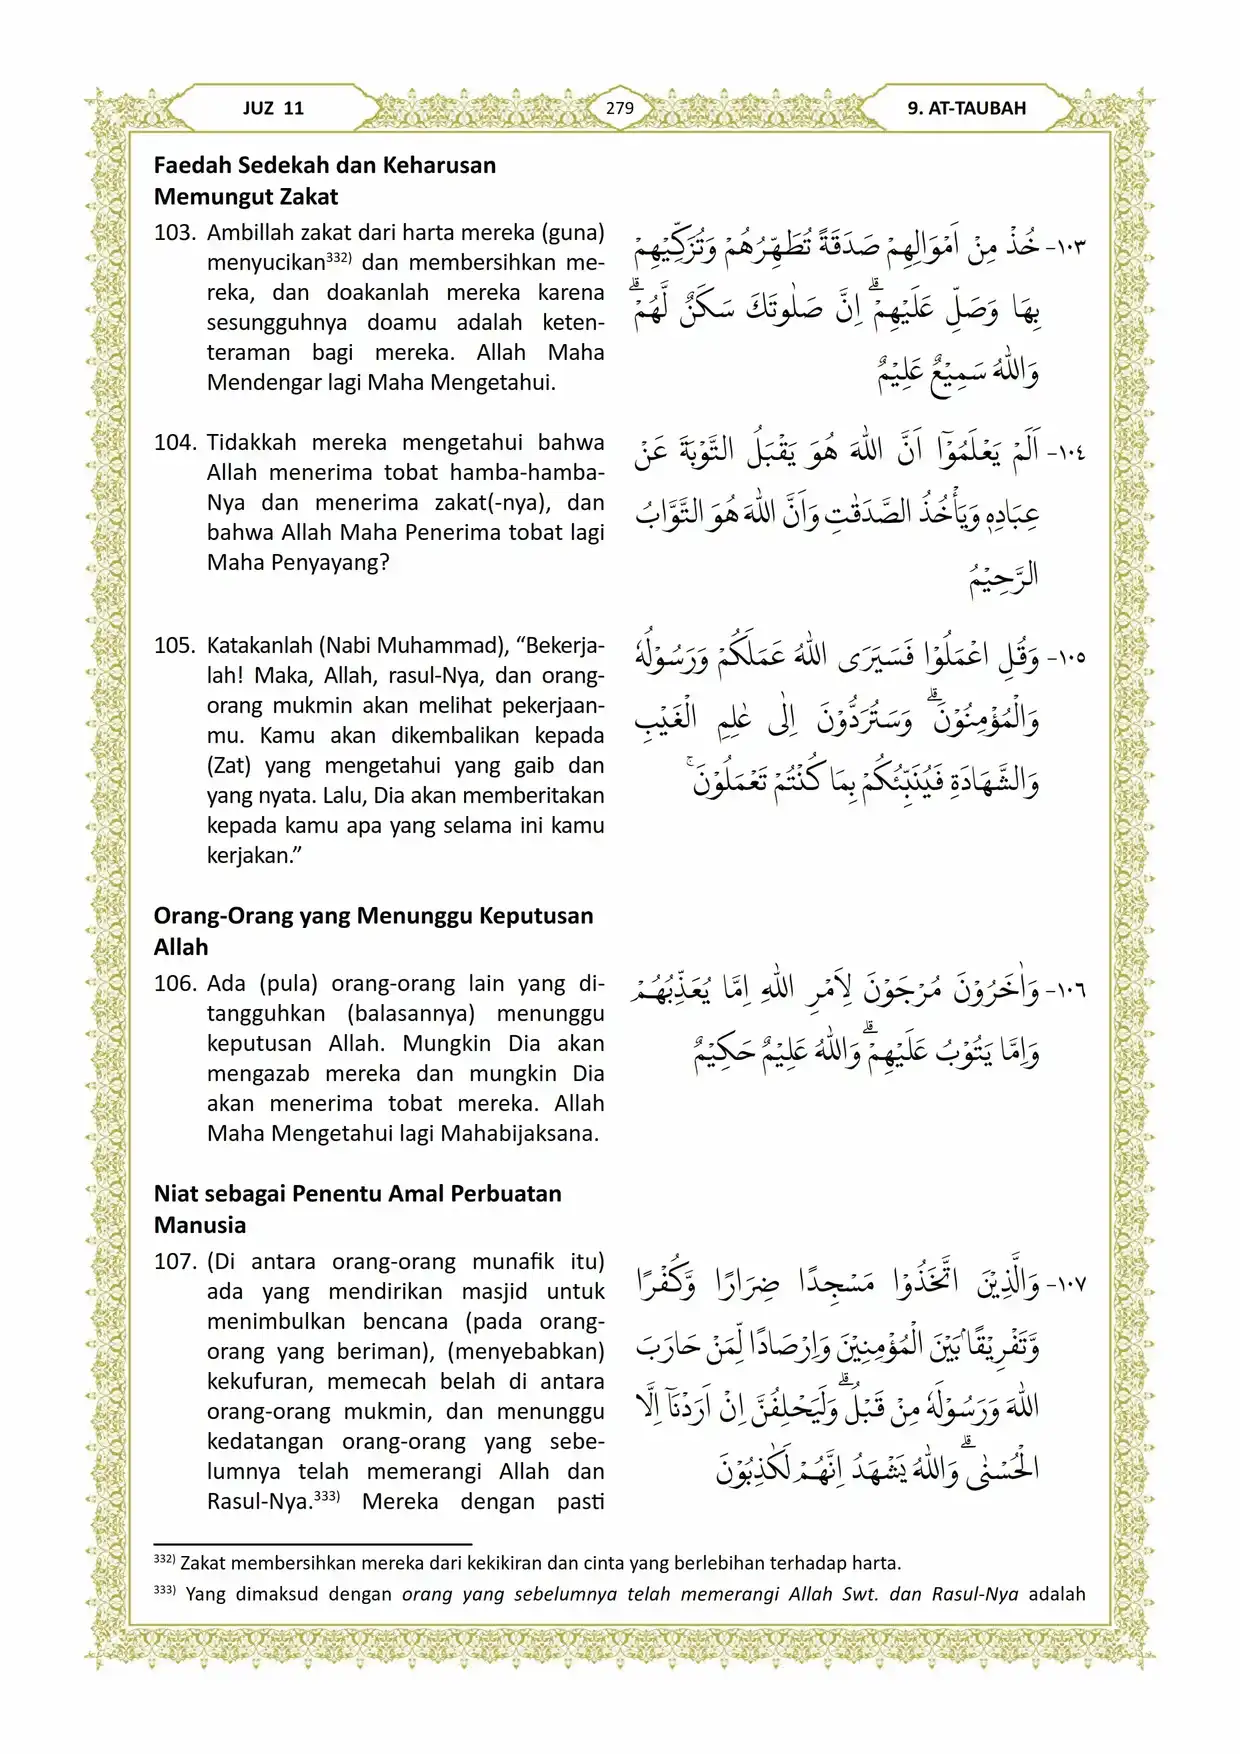 JUZ 11
279
9. AT-TAUBAH
Faedah Sedekah dan Keharusan
Memungut Zakat
103. Ambillah zakat dari harta mereka (guna)
menyucikan³³²⁾ dan membersihkan me-
reka, dan doakanlah mereka karena
sesungguhnya doamu adalah keten-
teraman bagi mereka. Allah Maha
Mendengar lagi Maha Mengetahui.
١٠٣- خُذْ مِنْ اَمْوَالِهِمْ صَدَقَةً تُطَهِّرُهُمْ وَتُزَكِّيْهِمْ
بِهَا وَصَلِّ عَلَيْهِمْۗ اِنَّ صَلٰوتَكَ سَكَنٌ لَّهُمْۗ
وَاللّٰهُ سَمِيْعٌ عَلِيْمٌ
104. Tidakkah mereka mengetahui bahwa
Allah menerima tobat hamba-hamba-
Nya dan menerima zakat(-nya), dan
bahwa Allah Maha Penerima tobat lagi
Maha Penyayang?
١٠٤- اَلَمْ يَعْلَمُوْٓا اَنَّ اللّٰهَ هُوَ يَقْبَلُ التَّوْبَةَ عَنْ
عِبَادِهٖ وَيَأْخُذُ الصَّدَقٰتِ وَاَنَّ اللّٰهَ هُوَ التَّوَّابُ
الرَّحِيْمُ
105. Katakanlah (Nabi Muhammad), “Bekerja-
lah! Maka, Allah, rasul-Nya, dan orang-
orang mukmin akan melihat pekerjaan-
mu. Kamu akan dikembalikan kepada
(Zat) yang mengetahui yang gaib dan
yang nyata. Lalu, Dia akan memberitakan
kepada kamu apa yang selama ini kamu
kerjakan.”
١٠٥- وَقُلِ اعْمَلُوْا فَسَيَرَى اللّٰهُ عَمَلَكُمْ وَرَسُوْلُهٗ
وَالْمُؤْمِنُوْنَۗ وَسَتُرَدُّوْنَ اِلٰى عٰلِمِ الْغَيْبِ
وَالشَّهَادَةِ فَيُنَبِّئُكُمْ بِمَا كُنْتُمْ تَعْمَلُوْنَۚ
Orang-Orang yang Menunggu Keputusan
Allah
106. Ada (pula) orang-orang lain yang di-
tangguhkan (balasannya) menunggu
keputusan Allah. Mungkin Dia akan
mengazab mereka dan mungkin Dia
akan menerima tobat mereka. Allah
Maha Mengetahui lagi Mahabijaksana.
١٠٦- وَاٰخَرُوْنَ مُرْجَوْنَ لِاَمْرِ اللّٰهِ اِمَّا يُعَذِّبُهُمْ
وَاِمَّا يَتُوْبُ عَلَيْهِمْۗ وَاللّٰهُ عَلِيْمٌ حَكِيْمٌ
Niat sebagai Penentu Amal Perbuatan
Manusia
107. (Di antara orang-orang munafik itu)
ada yang mendirikan masjid untuk
menimbulkan bencana (pada orang-
orang yang beriman), (menyebabkan)
kekufuran, memecah belah di antara
orang-orang mukmin, dan menunggu
kedatangan orang-orang yang sebe-
lumnya telah memerangi Allah dan
Rasul-Nya.³³³⁾ Mereka dengan pasti
١٠٧- وَالَّذِيْنَ اتَّخَذُوْا مَسْجِدًا ضِرَارًا وَّكُفْرًا
وَّتَفْرِيْقًاۢ بَيْنَ الْمُؤْمِنِيْنَ وَاِرْصَادًا لِّمَنْ حَارَبَ
اللّٰهَ وَرَسُوْلَهٗ مِنْ قَبْلُۗ وَلَيَحْلِفُنَّ اِنْ اَرَدْنَآ اِلَّا
الْحُسْنٰىۗ وَاللّٰهُ يَشْهَدُ اِنَّهُمْ لَكٰذِبُوْنَ
³³²⁾ Zakat membersihkan mereka dari kekikiran dan cinta yang berlebihan terhadap harta.
³³³⁾ Yang dimaksud dengan orang yang sebelumnya telah memerangi Allah Swt. dan Rasul-Nya adalah